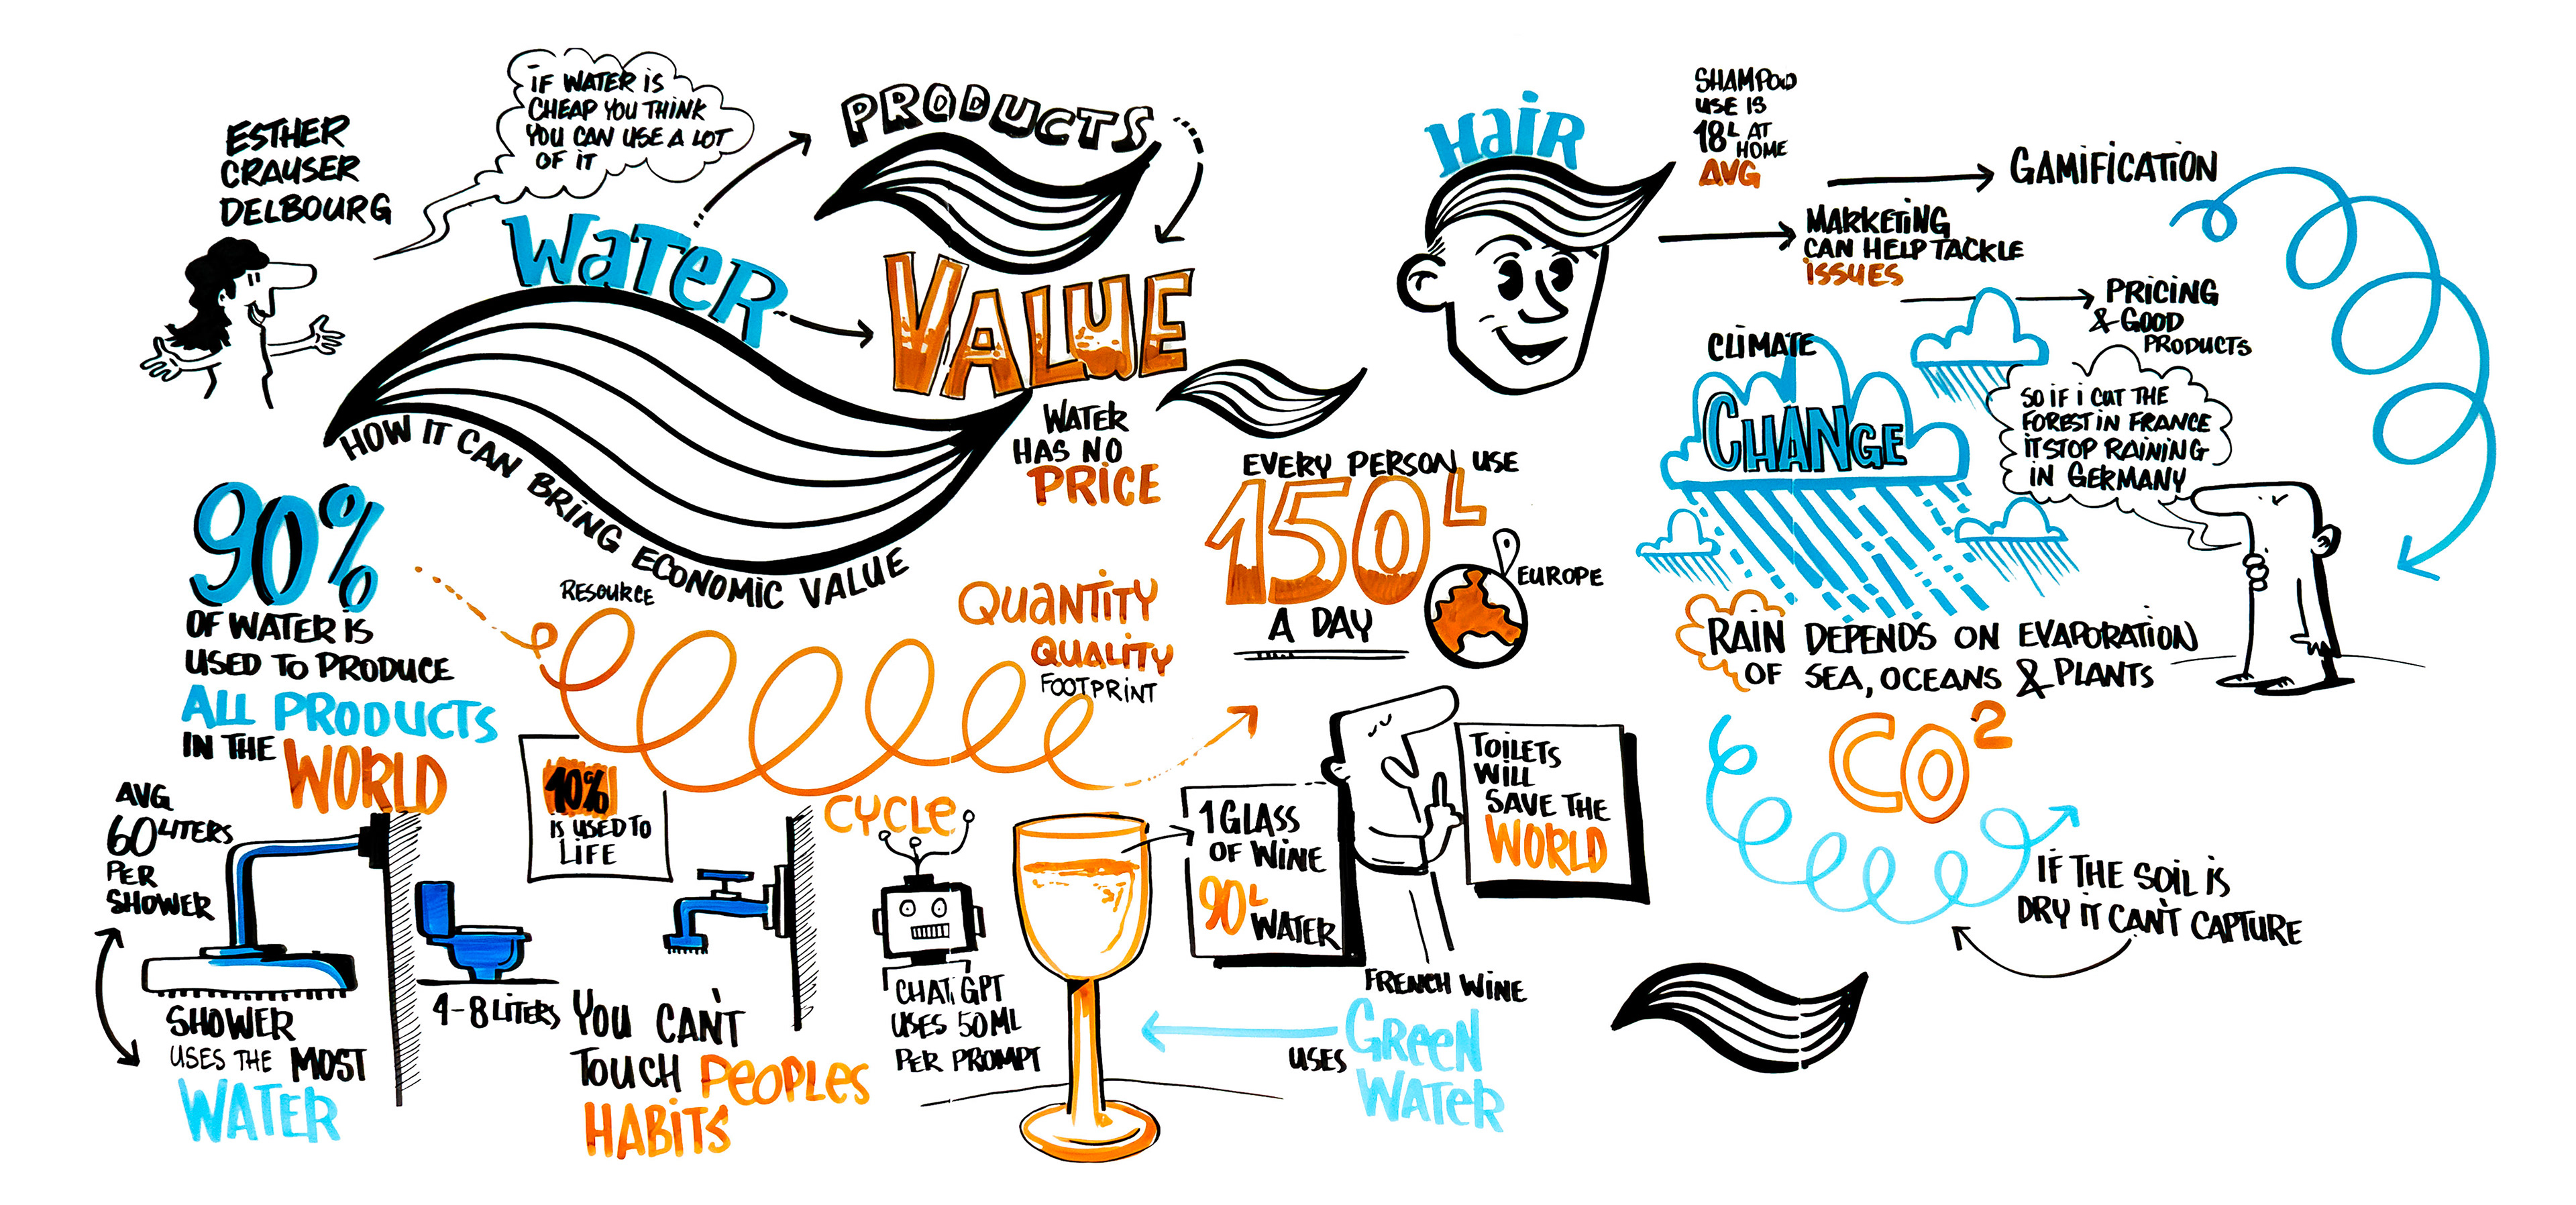 ESTHER
CRAUSER
DELBOURG
IF WATER IS
CHEAP YOU THINK
YOU CAN USE A LOT
OF IT
WATER
PRODUCTS
VALUE
HOW IT CAN BRING ECONOMIC VALUE
WATER
HAS NO
PRICE
90%
OF WATER IS
USED TO PRODUCE
ALL PRODUCTS
IN THE WORLD
RESOURCE
QUANTITY
QUALITY
FOOTPRINT
CYCLE
EVERY PERSON USE
150L
A DAY
EUROPE
AVG
60 LITERS
PER
SHOWER
SHOWER
USES THE MOST
WATER
10%
IS USED TO
LIFE
4-8 LITERS
YOU CAN'T
TOUCH PEOPLES
HABITS
CHAT GPT
USES 50ML
PER PROMPT
1 GLASS
OF WINE
90L
WATER
TOILETS
WILL
SAVE THE
WORLD
FRENCH WINE
USES GREEN
WATER
HAIR
SHAMPOO
USE IS
18L AT
HOME
AVG
GAMIFICATION
MARKETING
CAN HELP TACKLE
ISSUES
PRICING
& GOOD
PRODUCTS
CLIMATE
CHANGE
SO IF I CUT THE
FOREST IN FRANCE
IT STOP RAINING
IN GERMANY
RAIN DEPENDS ON EVAPORATION
OF SEA, OCEANS & PLANTS
CO²
IF THE SOIL IS
DRY IT CAN'T CAPTURE